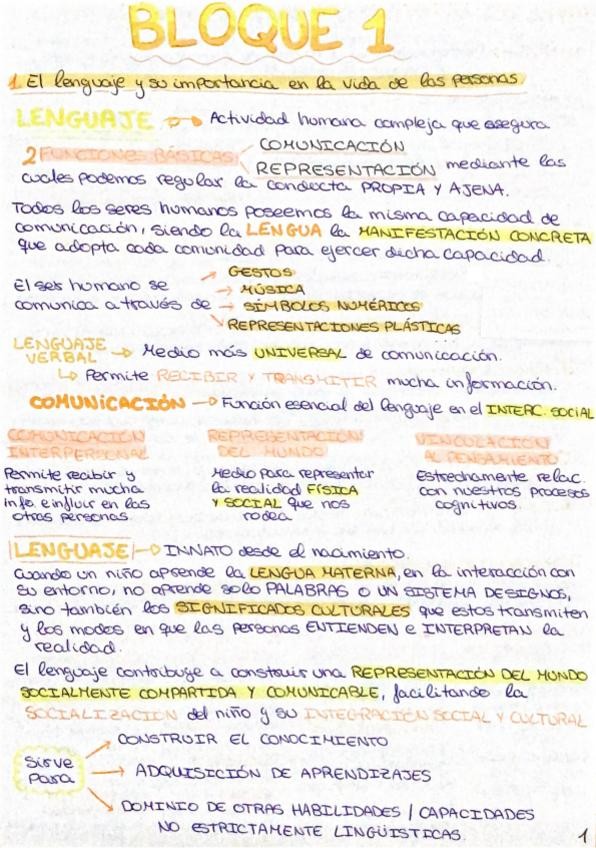 BLOQUE 1
1. El lenguaje y su importancia en la vida de las personas
LENGUAJE → Actividad humana compleja que asegura
2 FUNCIONES BÁSICAS COMUNICACIÓN
REPRESENTACIÓN mediante las
cuales podemos regular la conducta PROPIA Y AJENA.
Todos los seres humanos poseemos la misma capacidad de
comunicación, siendo la LENGUA la MANIFESTACIÓN CONCRETA
que adopta cada comunidad para ejercer dicha capacidad.
El ser humano se
comunica a través de
→ GESTOS
→ MÚSICA
→ SÍMBOLOS NUMÉRICOS
→ REPRESENTACIONES PLÁSTICAS
LENGUAJE
VERBAL → Medio más UNIVERSAL de comunicación.
↳ Permite RECIBIR Y TRANSMITIR mucha información.
COMUNICACIÓN → Función esencial del lenguaje en el INTERC. SOCIAL
COMUNICACIÓN
INTERPERSONAL
Permite recibir y
transmitir mucha
info. e influir en las
otras personas.
REPRESENTACIÓN
DEL MUNDO
Medio para representar
la realidad FÍSICA
Y SOCIAL que nos
rodea
VINCULACIÓN
AL PENSAMIENTO
Estrechamente relac.
con nuestros procesos
cognitivos.
LENGUAJE → INNATO desde el nacimiento.
Cuando un niño aprende la LENGUA MATERNA, en la interacción con
su entorno, no aprende solo PALABRAS O UN SISTEMA DE SIGNOS,
sino también los SIGNIFICADOS CULTURALES que estos transmiten
y los modos en que las personas ENTIENDEN e INTERPRETAN la
realidad.
El lenguaje contribuye a construir una REPRESENTACIÓN DEL MUNDO
SOCIALMENTE COMPARTIDA Y COMUNICABLE, facilitando la
SOCIALIZACIÓN del niño y su INTEGRACIÓN SOCIAL Y CULTURAL
Sirve
para
→ CONSTRUIR EL CONOCIMIENTO
→ ADQUISICIÓN DE APRENDIZAJES
→ DOMINIO DE OTRAS HABILIDADES / CAPACIDADES
NO ESTRICTAMENTE LINGÜISTICAS.
1